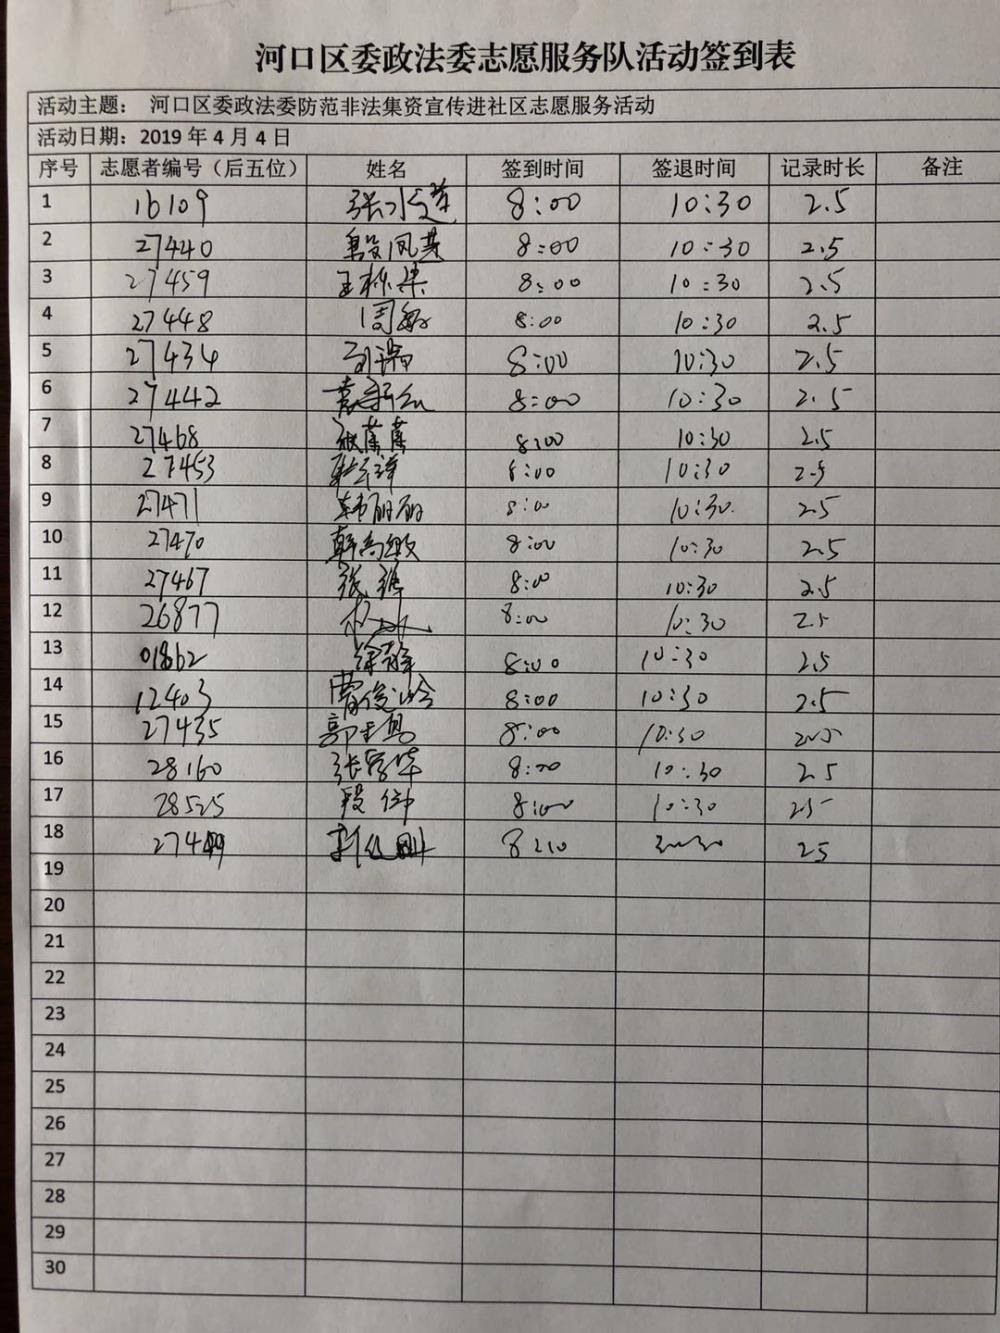 河口区委政法委志愿服务队活动签到表
活动主题： 河口区委政法委防范非法集资宣传进社区志愿服务活动
活动日期：2019 年 4 月 4 日
序号 志愿者编号（后五位） 姓名 签到时间 签退时间 记录时长 备注
1 16109 张 8:00 10:30 2.5
2 27440 殷凤英 8:00 10:30 2.5
3 27459 王 8:00 10:30 2.5
4 27448 周敏 8:00 10:30 2.5
5 27434 8:00 10:30 2.5
6 27442 袁 8:00 10:30 2.5
7 27468 张蕾蕾 8:00 10:30 2.5
8 27453 8:00 10:30 2.5
9 27471 韩丽丽 8:00 10:30 2.5
10 27470 韩尚敏 8:00 10:30 2.5
11 27467 张 8:00 10:30 2.5
12 26877 8:00 10:30 2.5
13 01862 徐静 8:00 10:30 2.5
14 12403 曹俊岭 8:00 10:30 2.5
15 27435 郭 8:00 10:30 2.5
16 28160 张 8:00 10:30 2.5
17 28525 段 8:00 10:30 2.5
18 8:10 2.5
19
20
21
22
23
24
25
26
27
28
29
30